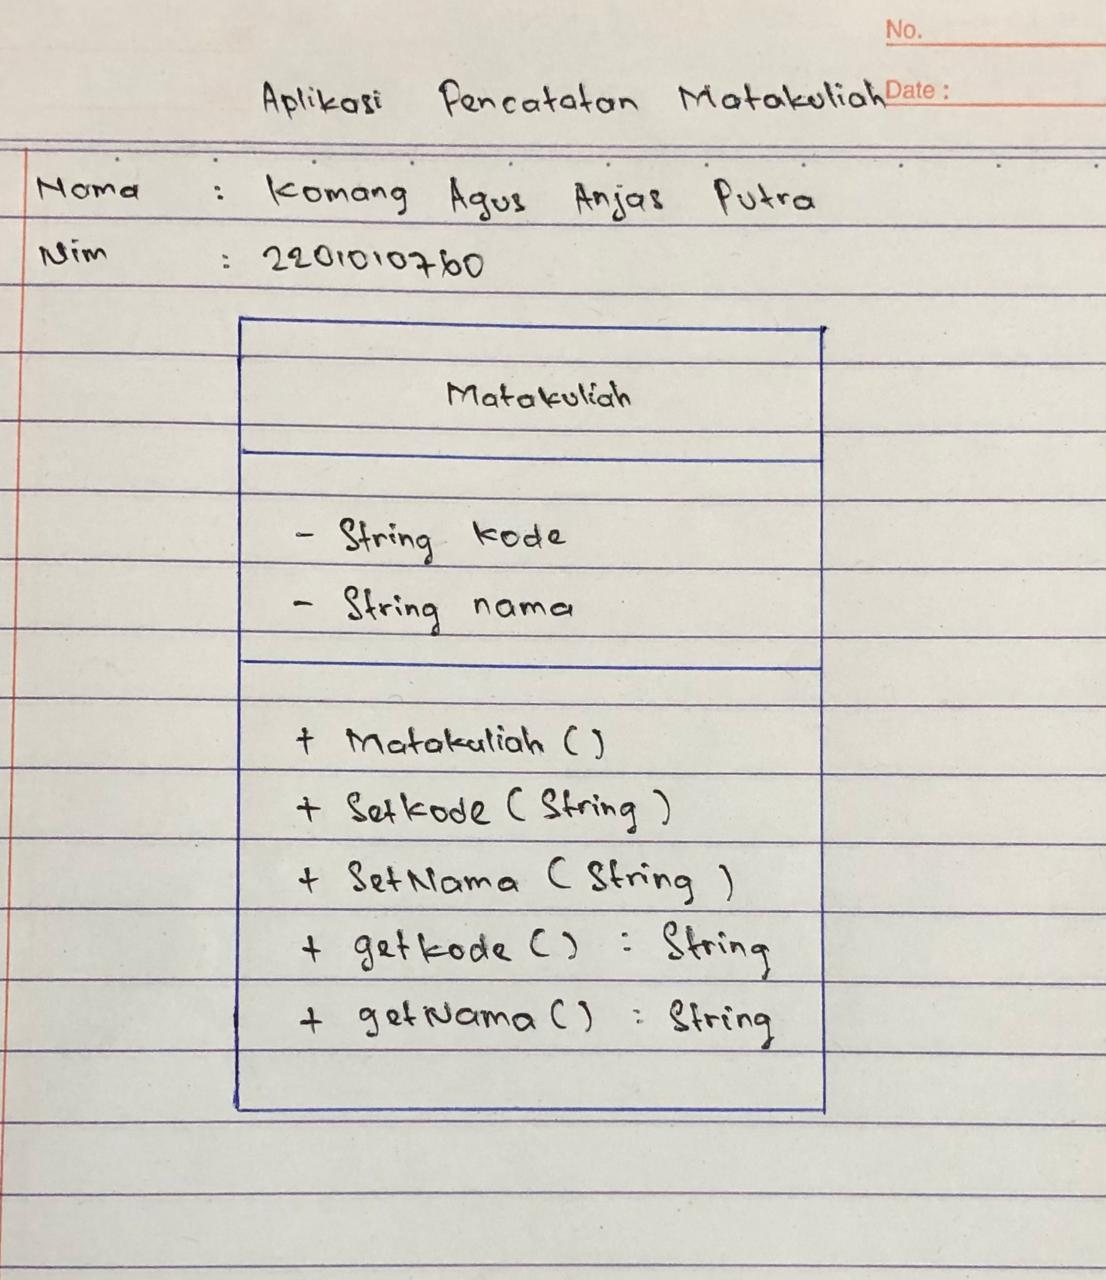 No.
Aplikasi Pencatatan Matakuliah Date :
Nama : Komang Agus Anjas Putra
Nim : 2201010760
Matakuliah
- String kode
- String nama
+ Matakuliah ()
+ Setkode (String)
+ SetNama (String)
+ getkode () : String
+ getNama () : String